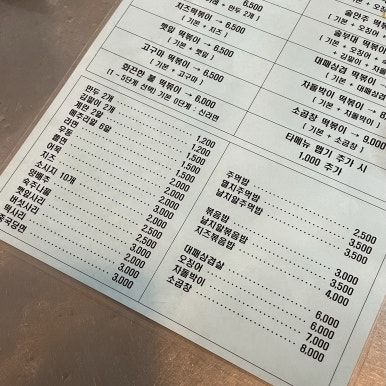 만두 2개 )
치즈떡볶이 → 6,500
( 기본 + 치즈 )
깻잎 떡볶이 → 6,500
( 기본 + 깻잎 )
고구마 떡볶이 → 6,500
( 기본 + 고구마 )
화끈한 불 떡볶이 → 6,000
( 1~5단계 선택) 기본 0단계 : 신라면
술안주 떡볶이
( 기본 + 오징어
술부대 떡볶이
( 기본 + 오징어 +
+ 김말이 + 치즈
대패삼겹 떡볶이
( 기본 + 대패삼겹
차돌박이 떡볶이 →
( 기본 + 차돌박이 )
소곱창 떡볶이 → 9,000
( 기본 + 소곱창 )
타메뉴 맵기 추가 시
1,000 추가
만두 2개 1,200
김말이 2개 1,200
계란 2알 1,500
메추리알 6알 1,500
라면 1,500
우동 2,000
쫄면 2,000
어묵 2,000
치즈 3,000
소시지 10개 2,000
양배추 2,000
숙주나물 2,500
깻잎사리 3,000
버섯사리 2,000
떡사리 3,000
중국당면 3,000
주먹밥 2,500
멸치주먹밥 3,500
날치알주먹밥 3,500
볶음밥 3,000
날치알볶음밥 3,500
치즈볶음밥 4,000
대패삼겹살 6,000
오징어 6,000
차돌박이 7,000
소곱창 8,000